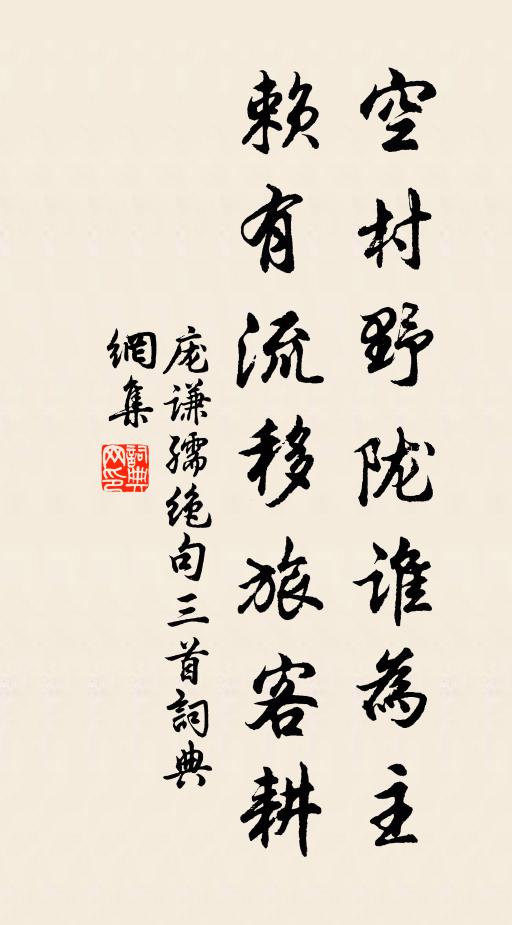 空村野陇谁為主
赖有流移旅客耕
庞谦孺绝句三首詞典
網集
詞典
网印